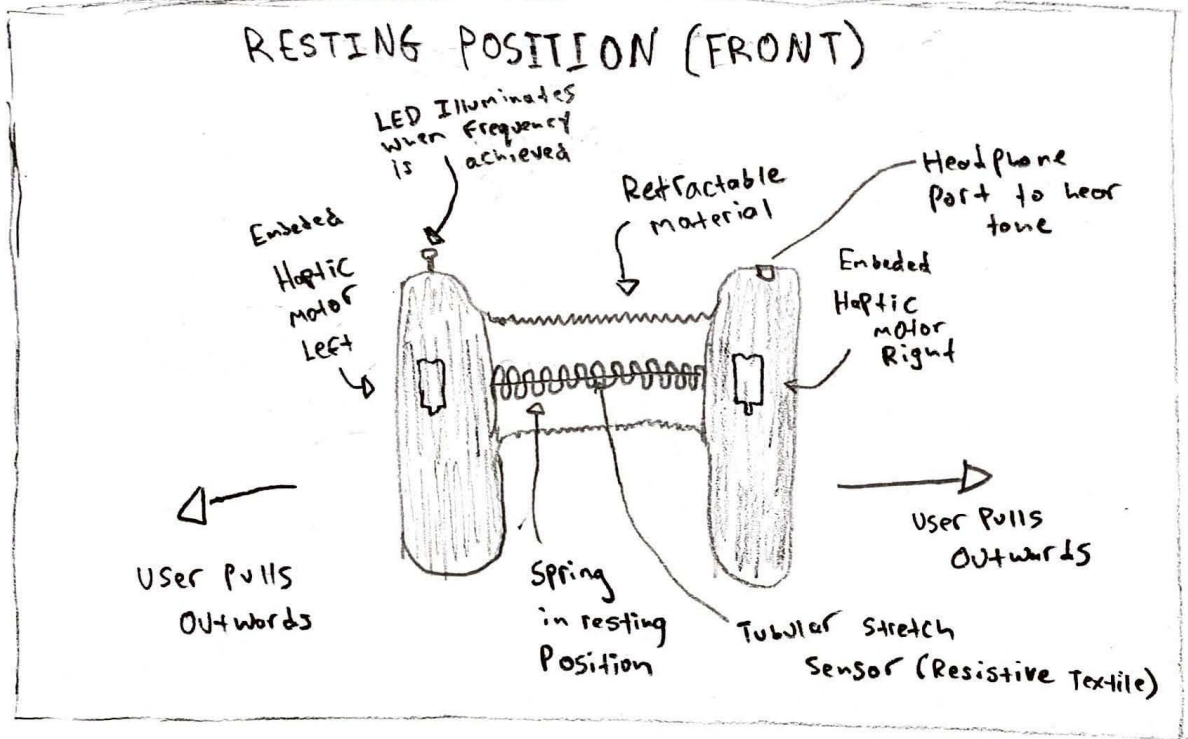 RESTING POSITION (FRONT)
LED Illuminates
when frequency
is achieved
Retractable
material
Headphone
Port to hear
tone
Embeded
Haptic
motor
Left
Embeded
Haptic
motor
Right
User Pulls
Outwords
User Pulls
Outwards
Spring
in resting
Position
Tubular Stretch
Sensor (Resistive Textile)